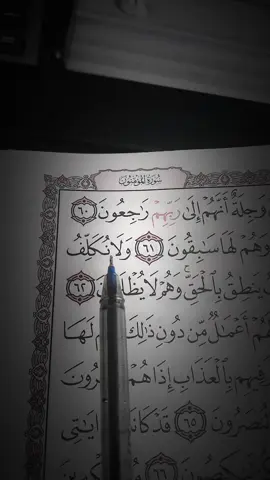 سُورَةُ المُؤْمِنُونَ
وَجِلَةٌ أَنَّهُمْ إِلَىٰ رَبِّهِمْ رَٰجِعُونَ ٦٠
وَهُمْ لَهَا سَٰبِقُونَ ٦١ وَلَا نُكَلِّفُ
يَنطِقُ بِٱلْحَقِّ وَهُمْ لَا ٦٢
أَعْمَٰلٌ مِّن دُونِ ذَٰلِكَ لَهَا
بِٱلْعَذَابِ إِذَا هُمْ
٦٥ قَدْ ءَايَٰتِى
٦٦